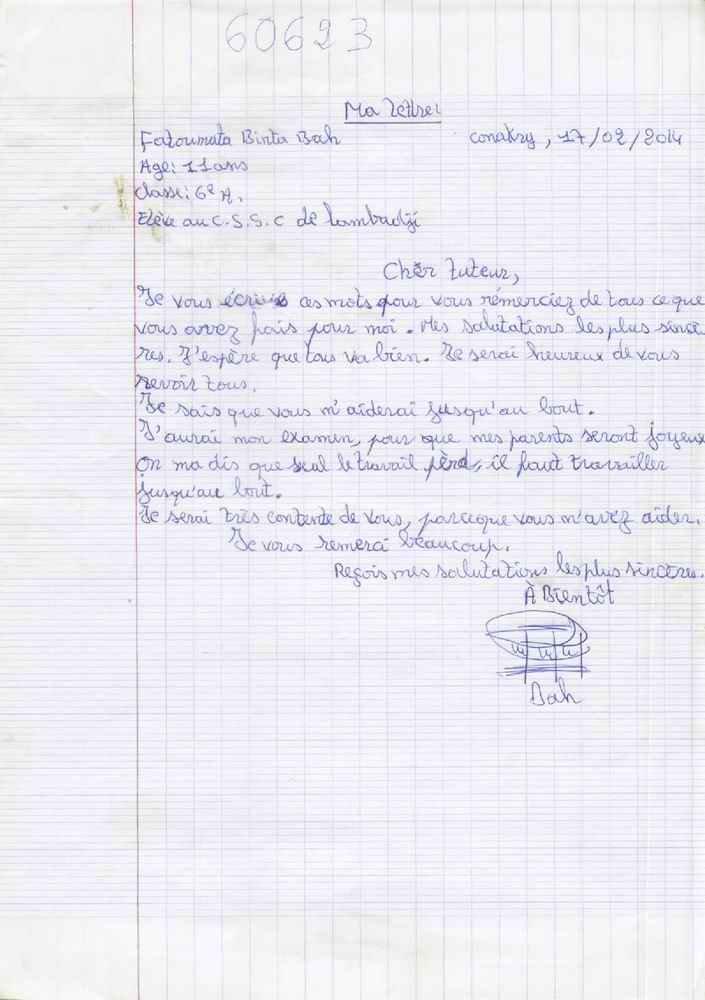 60623
Ma lettre:
Fatoumata Binta Bah conakry, 17/02/2014
Age: 11ans
classe: 6e A.
Elève au C.S.S.C de lambadji
Chèr tuteur,
Je vous écris ces mots pour vous rémerciez de tous ce que
vous avvez fais pour moi. Mes salutations les plus since
res. J'espère que tous va bien. Je serai heureux de vous
revoir tous.
Je sais que vous m'aiderai jusqu'au bout.
J'aurai mon examen, pour que mes parents seront joyeux
On ma dis que seul le travail pèrd, il faut travailler
jusqu'au bout.
Je serai très contente de vous, parceque vous m'avez aider.
Je vous remerci beaucoup.
Reçois mes salutations les plus sincères.
À Bientôt
Bah